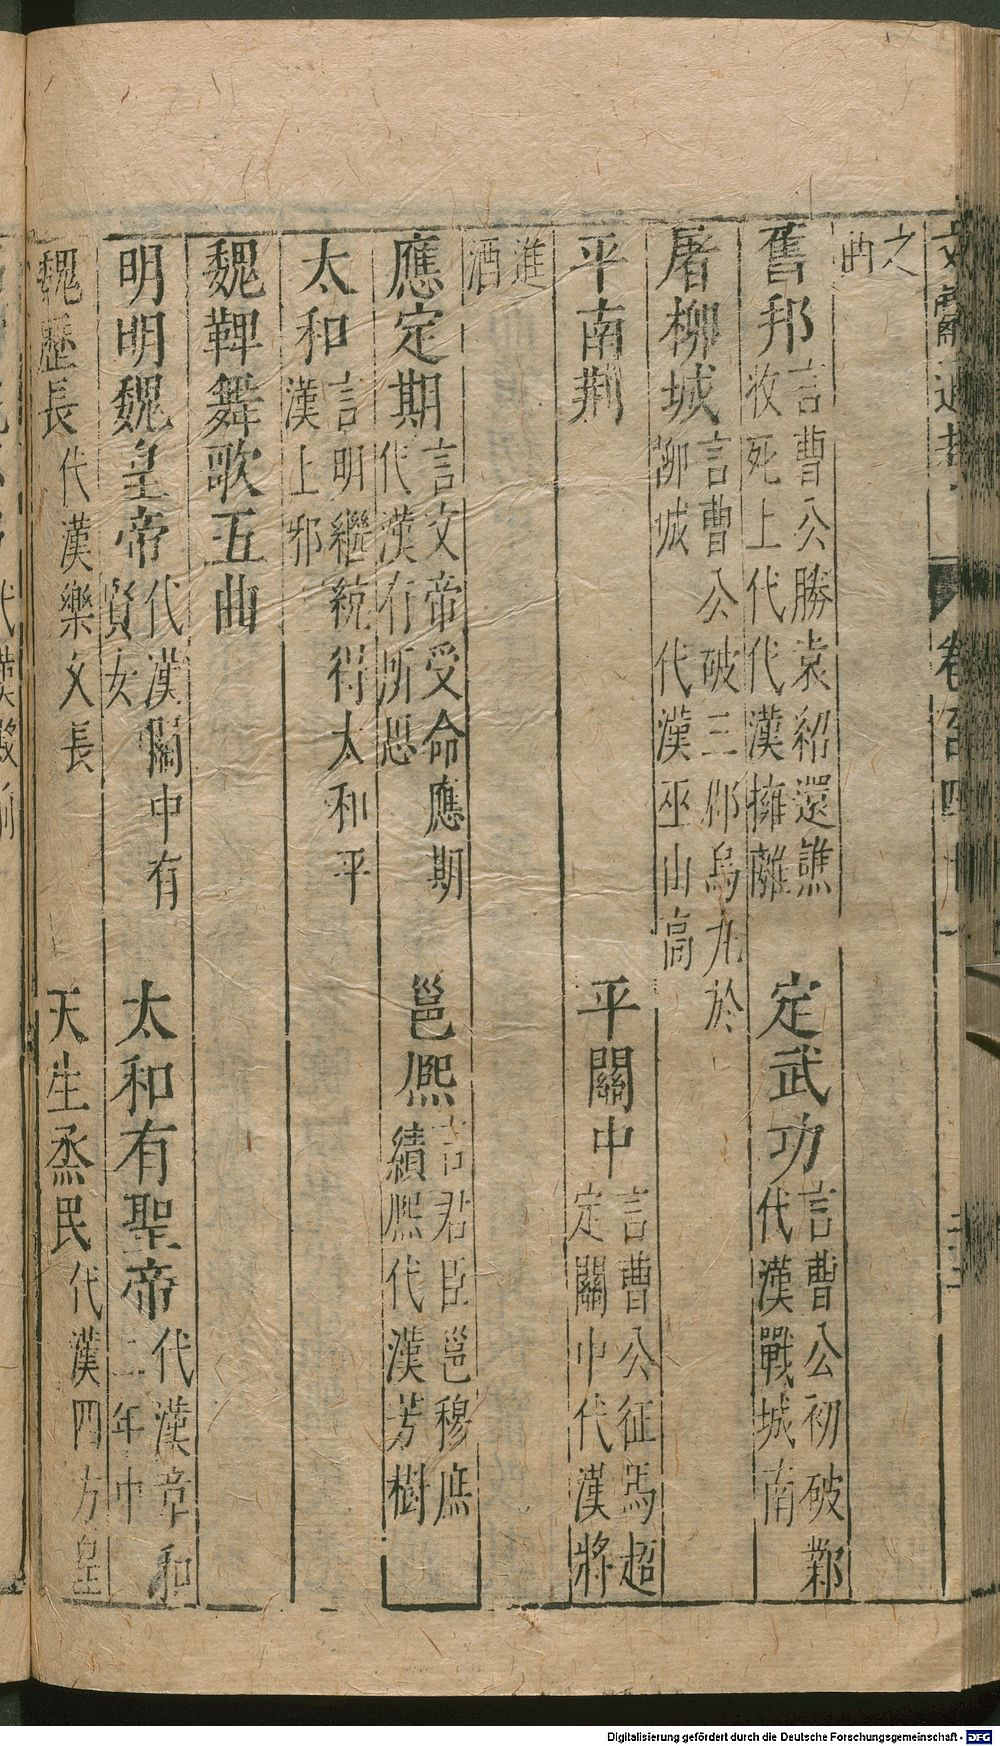 文獻通考 卷百四十一
之
酒
舊邦 言曹公勝袁紹還譙
收死上代代漢擁離
定武功 言曹公初破鄴
代漢戰城南
屠柳城 言曹公破三郡烏九於
柳城 代漢巫山高
平南荆
平關中 言曹公征馬超
定關中代漢將
進
酒
應定期 言文帝受命應期
代漢有所思
邕熈 言君臣邕穆庶
績熈代漢芳樹
太和 言明繼統得太和平
漢上邪
魏鞞舞歌五曲
明明魏皇帝 代漢關中有
賢女
太和有聖帝 代漢章和
二年中
魏歷長 代漢樂久長
天生烝民 代漢四方皇
Digitalisierung gefördert durch die Deutsche Forschungsgemeinschaft - DFG